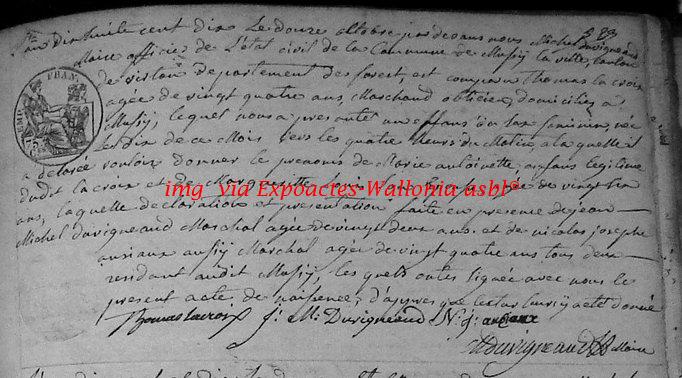 dix huite cent dix Le douze octobre par devans nous Michel duvigneaud
Maire officier de L'etat civil de la Commune de Mussij la ville, canton
de virton departement des forest, est comparu Thomas la croix
agee de vingt quatre ans, Marchand domicilié a
Mussij, lequel nous a presanté un enfans du sexe feminin, née
Le dix de ce Mois vers les quatre heures du Matin, a la quelle il
a declarée vouloir donner le prenoms de Marie antoinette, enfans legitime
dudit la croix et de Margueritte agée de vingt six
ans, laquelle declaration et presentation faite en presence de jean
Michel duvigneaud Marchal agee de vingt deux ans. et de nicolas josephe
ansiaux aussij Marchal agée de vingt quatre ans tous deux
residant audit Mussij, les quels ont signée avec nous le
present acte de naissence, d'appres que lecture leurs ij a eté donnée
Thomas lacroix J: M: Duvigneaud N: j: ansiaux
duvigneaud Maire
img via Expoactes-Wallonia asbl®
FRAN
75